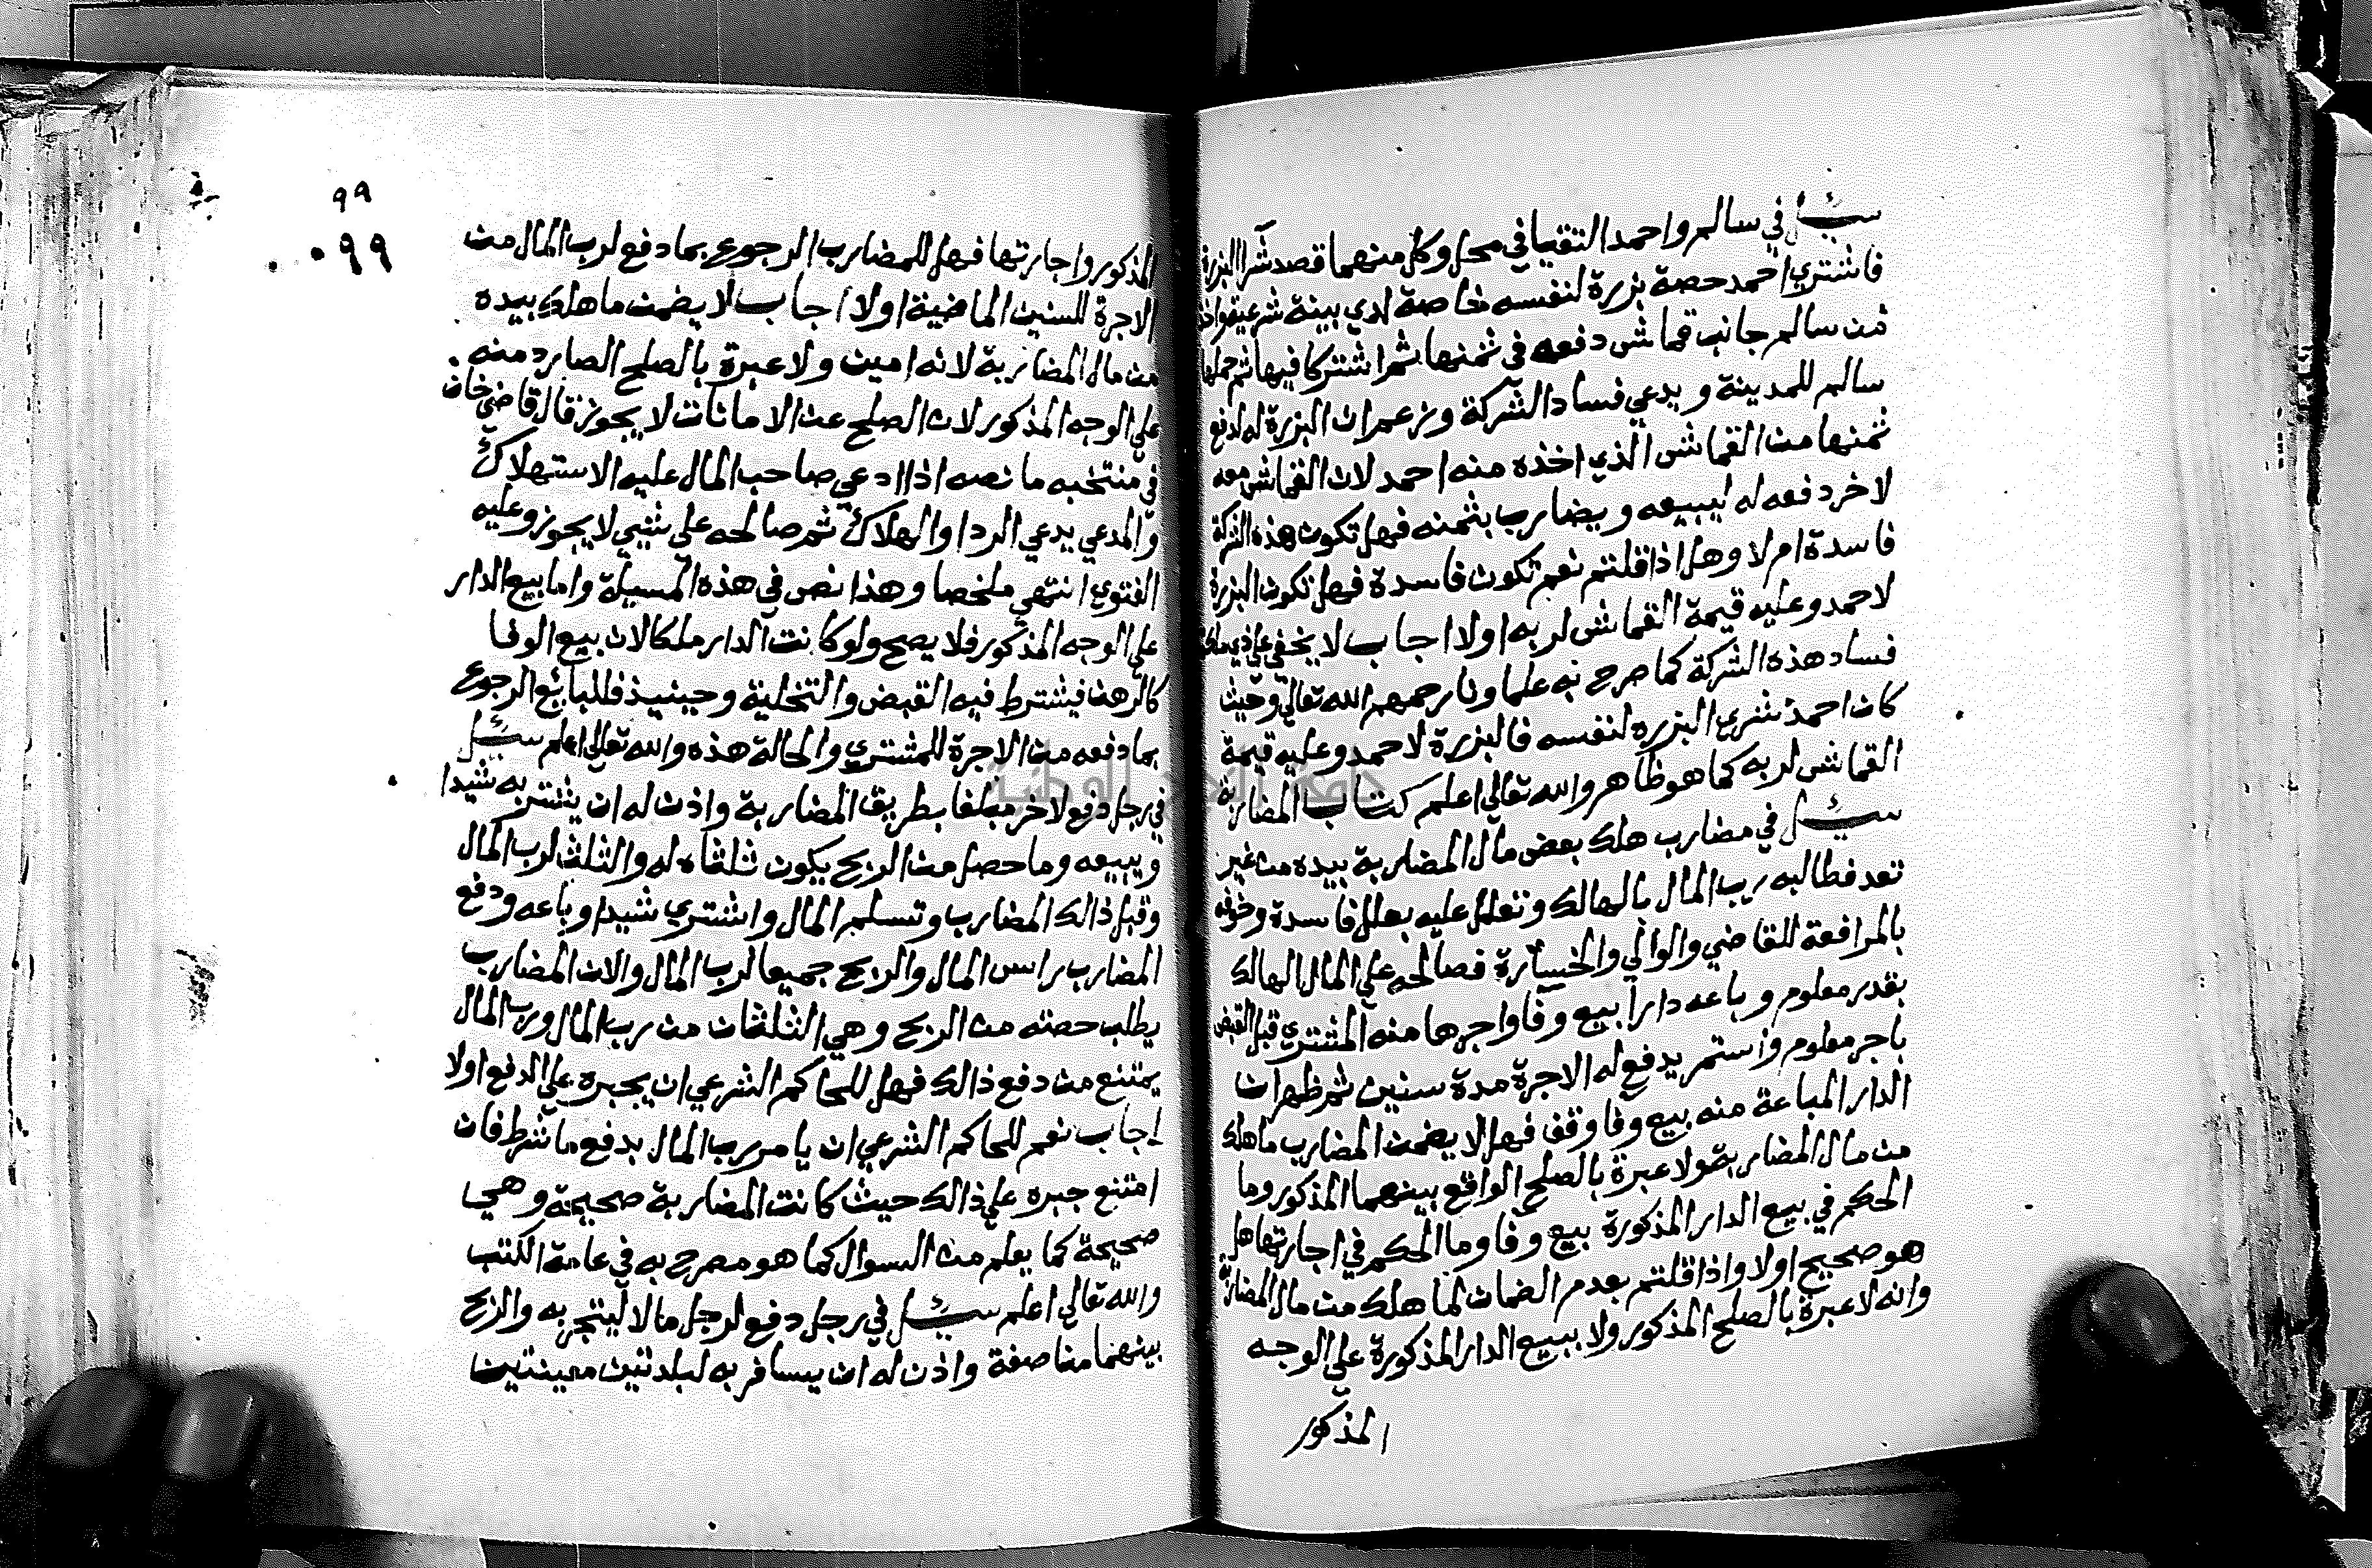 سئل في سالم واحمد التقيا في محل وكل منهما قصد شرا البزرة
فاشتري احمد حصة بزرة لنفسه خاصة لدي بينة شرعية واخذ
من سالم جانب قماش دفعه في ثمنها ثم اشتركا فيها ثم حملها
سالم للمدينة ويدعي فساد الشركة وزعم ان البزرة له لدفع
ثمنها من القماش الذي اخذه منه احمد لان القماش معه
لاخر دفعه له ليبيعه ويضارب بثمنه فهل تكون هذه الشركة
فاسدة ام لا وهل اذا قلتم نعم تكون فاسدة فهل تكون البزرة
لاحمد وعليه قيمة القماش لربه اولا اجاب لا يخفي علي ذي
فساد هذه الشركة كما صرح به علماونا رحمهم الله تعالي وحيث
كان احمد شري البزره لنفسه فالبزرة لاحمد وعليه قيمة
القماش لربه كما هو ظاهر والله تعالي اعلم كتاب المضاربة
سيئل في مضارب هلك بعض مال المضاربة بيده من غير
تعد فطالبه رب المال بالهالك وتعلل عليه بعلل فاسدة وخوفه
بالمرافعة للقاضي والوالي والخسارة فصالحه علي المال الهالك
بقدر معلوم وباعه دارا بيع وفا واجرها منه المشتري قبل القبض
باجر معلوم واستمر يدفع له الاجرة مدة سنين ثم ظهر ان
الدار المباعة منه بيع وفا وقف فهل لا يضمن المضارب ما هلك
من مال المضاربة ولا عبرة بالصلح الواقع بينهما المذكور وما
الحكم في بيع الدار المذكورة بيع وفا وما الحكم في اجارتها هل
هو صحيح اولا واذا قلتم بعدم الضمان لما هلك من مال المضاربة
وانه لا عبرة بالصلح المذكور ولا ببيع الدار المذكورة علي الوجه
المذكور
٩٩
٠٩٩
المذكور واجارتها فهل للمضارب الرجوع بما دفع لرب المال من
الاجرة للسنين الماضية اولا اجاب لا يضمن ما هلك بيده
من مال المضاربة لانه امين ولا عبرة بالصلح الصادر منه
علي الوجه المذكور لان الصلح عن الامانات لا يجوز قال قاضي خان
في منتخبه ما نصه اذا ادعي صاحب المال عليه الاستهلاك
والمدعي يدعي الرد او الهلاك ثم صالحه علي شيي لا يجوز وعليه
الفتوي انتهي ملخصا وهذا نص في هذه المسيلة واما بيع الدار
علي الوجه المذكور فلا يصح ولو كانت الدار ملكا لان بيع الوفا
كالرهن فيشترط فيه القبض والتخلية وحينيذ فللبائع الرجوع
بما دفعه من الاجرة للمشتري والحالة هذه والله تعالي اعلم سيئل
في رجل دفع لاخر مبلغا بطريق المضاربة واذن له ان يشتري به شيدا
ويبيعه وما حصل من الربح يكون ثلثاه له والثلث لرب المال
وقبل ذالك المضارب وتسلم المال واشتري شيدا وباعه ودفع
المضارب راس المال والربح جميعا لرب المال والان المضارب
يطلب حصته من الربح وهي الثلثان من رب المال ورب المال
يمتنع من دفع ذالك فهل للحاكم الشرعي ان يجبره علي الدفع اولا
اجاب نعم للحاكم الشرعي ان يامر رب المال بدفع ما شرط فان
امتنع جبره علي ذالك حيث كانت المضاربة صحيحة وهي
صحيحة كما يعلم من السوال كما هو مصرح به في عامة الكتب
والله تعالي اعلم سيئل في رجل دفع لرجل مالا ليتجر به والربح
بينهما مناصفة واذن له ان يسافر به لبلدتين معينتين
جامعة النجاح الوطنية